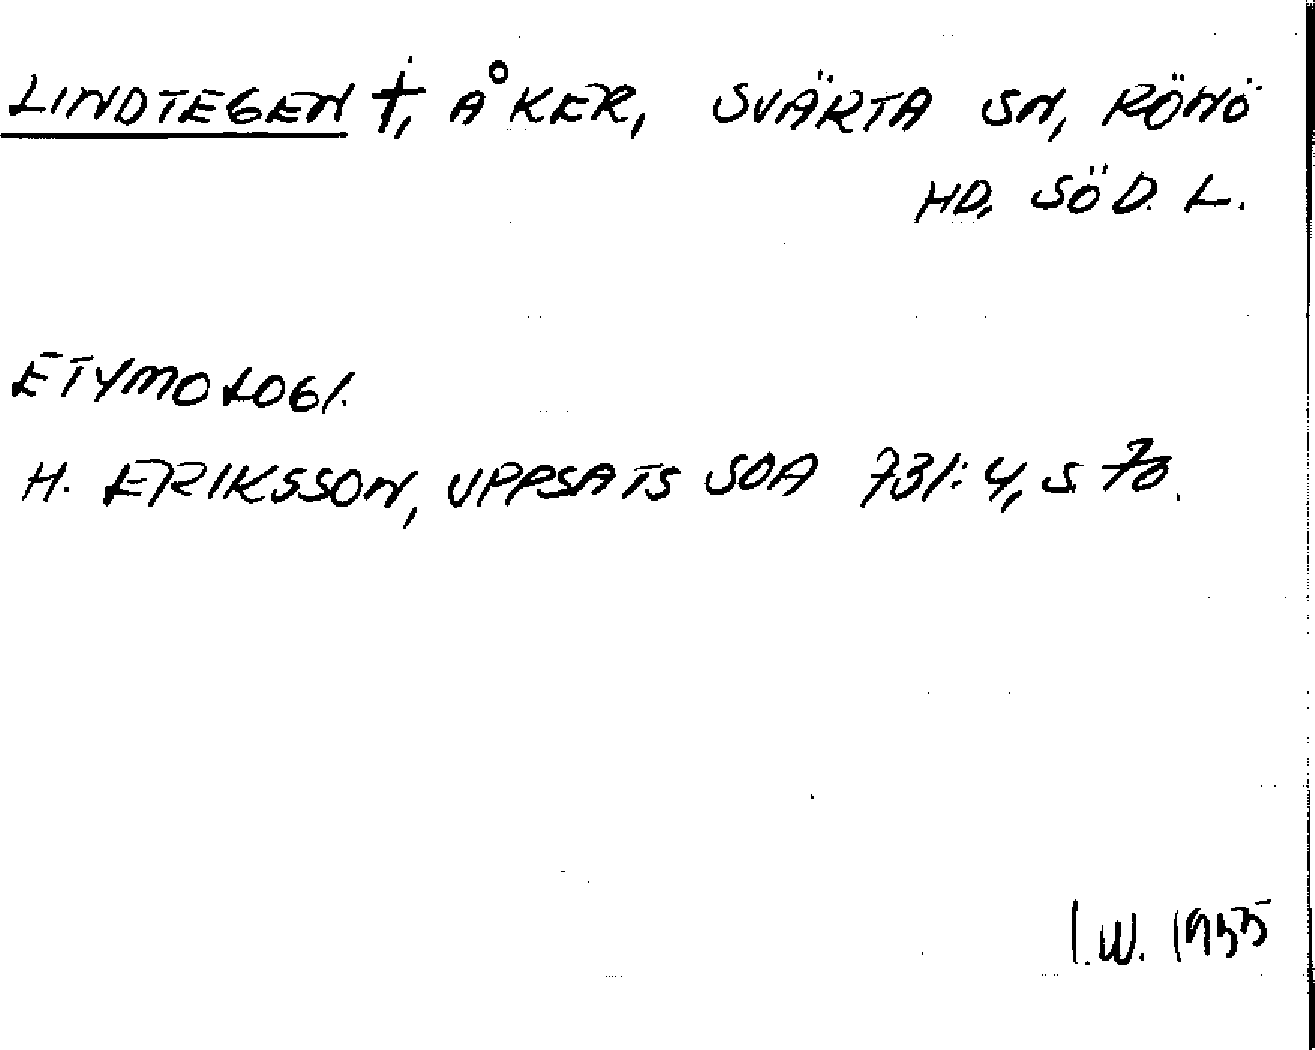 LINDTEGEN †, ÅKER, SVÄRTA SN, RÖNÖ
HD, SÖD. L.
ETYMOLOGI.
H. ERIKSSON, UPPSATS SOA 731:4, S. 70.
I.W. 1955